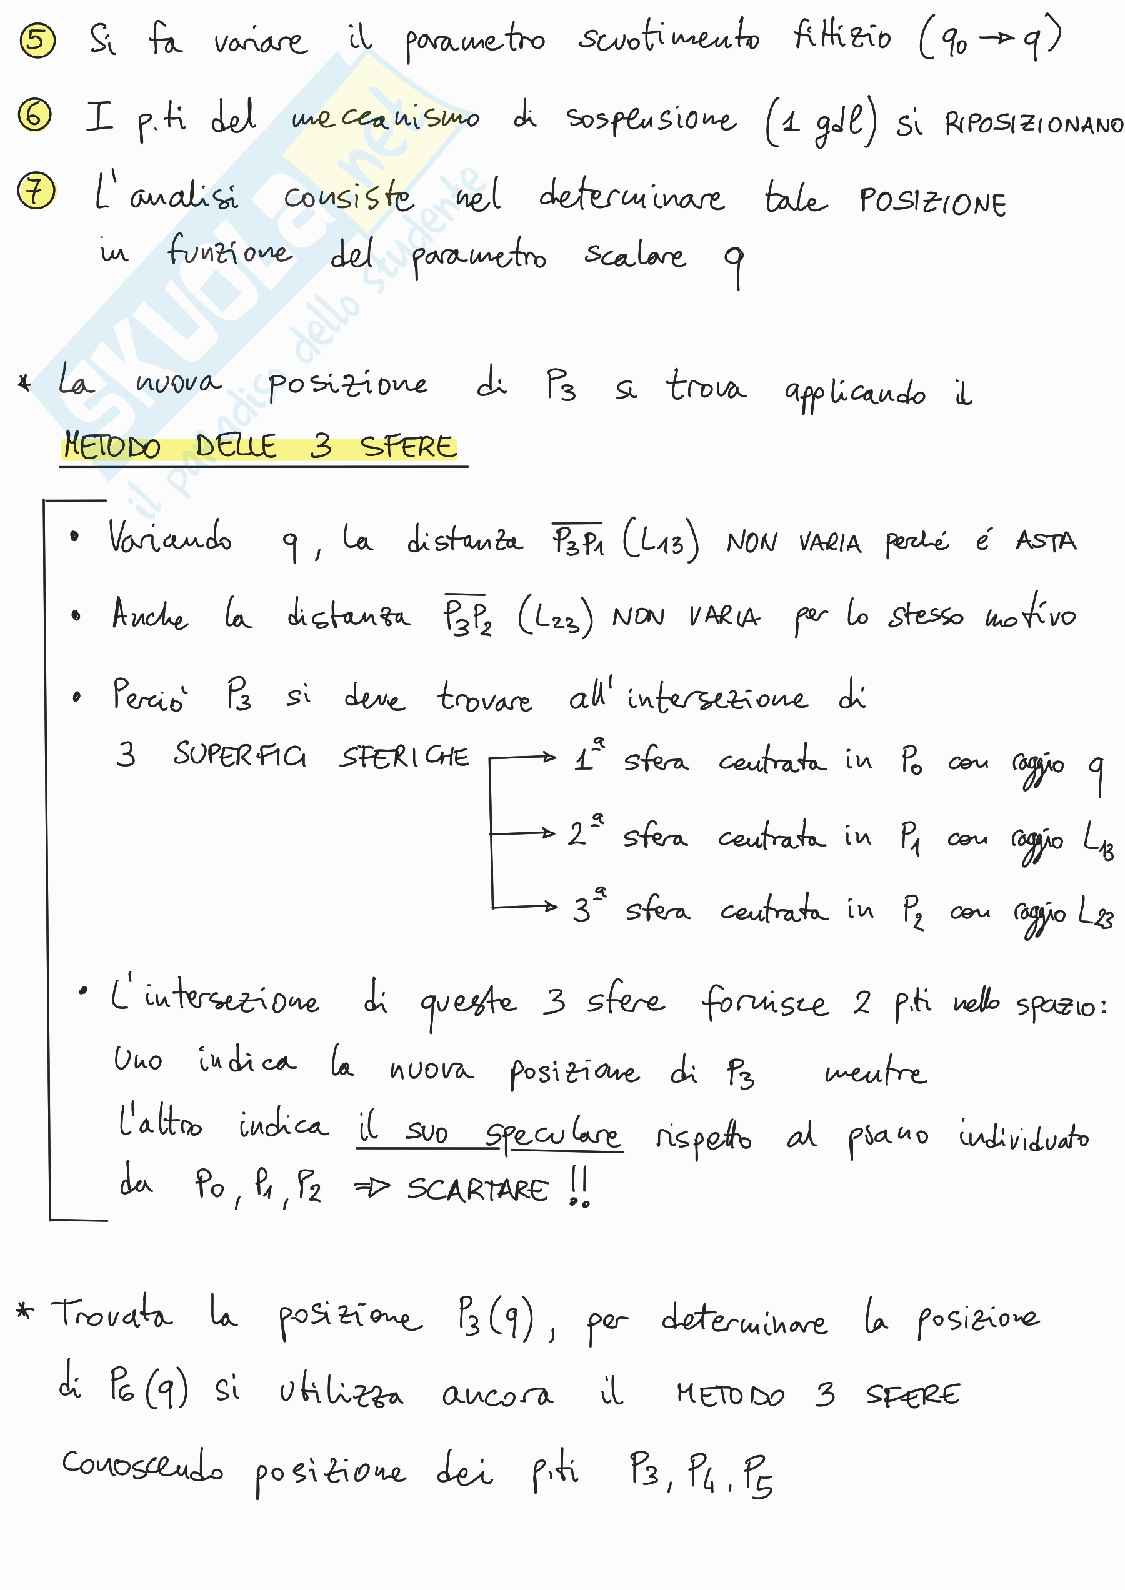 ⑤ Si fa variare il parametro scuotimento fittizio (q₀ → q)
⑥ I p.ti del meccanismo di sospensione (1 gdl) si RIPOSIZIONANO
⑦ L'analisi consiste nel determinare tale POSIZIONE
in funzione del parametro scalare q
* La nuova posizione di P₃ si trova applicando il
METODO DELLE 3 SFERE
• Variando q, la distanza P₃P₁ (L₁₃) NON VARIA perché é ASTA
• Anche la distanza P₃P₂ (L₂₃) NON VARIA per lo stesso motivo
• Perciò P₃ si deve trovare all'intersezione di
3 SUPERFICI SFERICHE → 1ª sfera centrata in P₀ con raggio q
→ 2ª sfera centrata in P₁ con raggio L₁₃
→ 3ª sfera centrata in P₂ con raggio L₂₃
• L'intersezione di queste 3 sfere fornisce 2 p.ti nello spazio:
Uno indica la nuova posizione di P₃ mentre
l'altro indica il suo speculare rispetto al piano individuato
da P₀, P₁, P₂ => SCARTARE !!
* Trovata la posizione P₃(q), per determinare la posizione
di P₆(q) si utilizza ancora il METODO 3 SFERE
conoscendo posizione dei p.ti P₃, P₄, P₅
SKUOLA.net
il paradiso dello studente